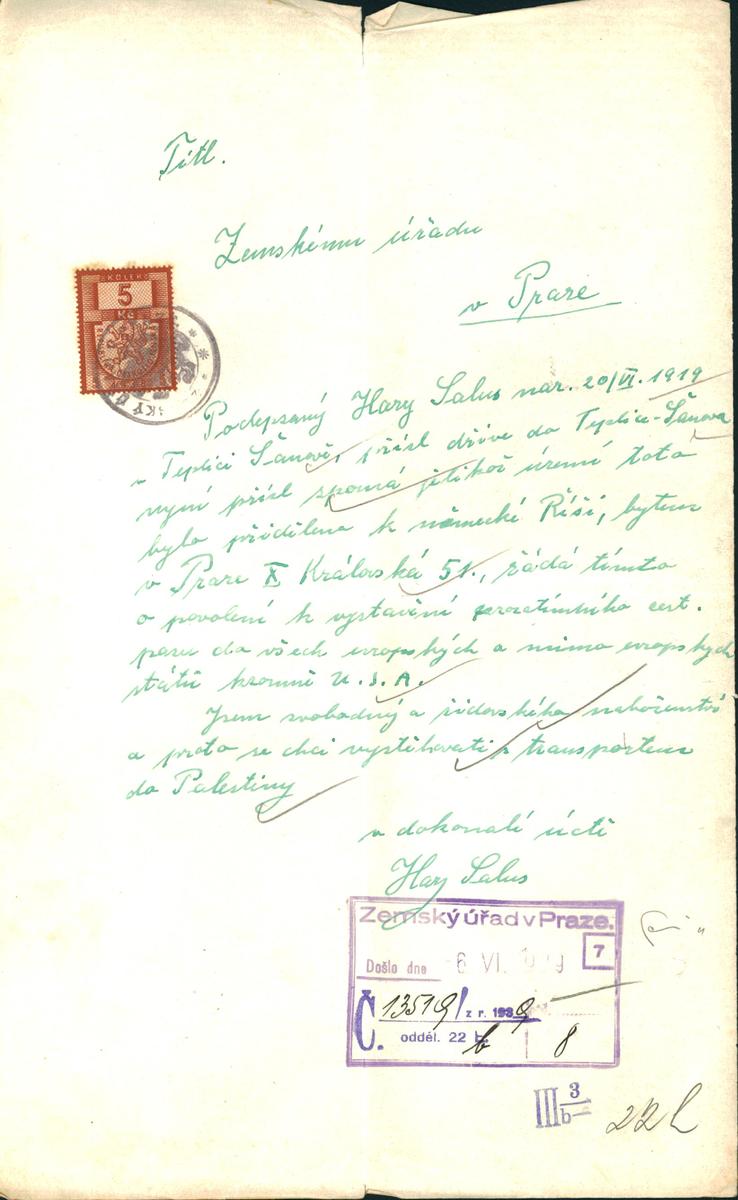 Titl.
Zemskému úřadu
v Praze
KOLEK
5
Kč
Podepsaný Hary Salus nar. 20/VI. 1919
v Teplici Šanově, přísl dříve do Teplic-Šanova
nyní přísl sporná jelikož území toto
bylo přiděleno k německé Říši, bytem
v Praze X Královská 51., žádá tímto
o povolení k vystavení prozatímního cest.
pasu do všech evropských a mimo evropských
států kromně U.S.A.
Jsem svobodný a židovského náboženství
a proto se chci vystěhovati s transportem
do Palestiny
v dokonalé úctě
Hary Salus
Zemský úřad v Praze.
7
Došlo dne 6 VI. 1939
Č. 13519/ z r. 1939
odděl. 22 b
8
III 3
b
22b